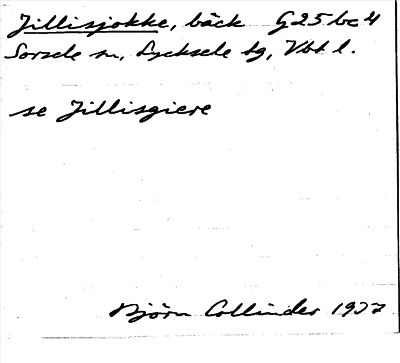 Jillisjokke, bäck G25bc4
Sorsele sn, Lycksele tg, Vbt l.
se Jillisgiere
Björn Collinder 1937